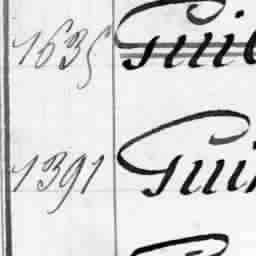 1635 Guil
1391 Gui